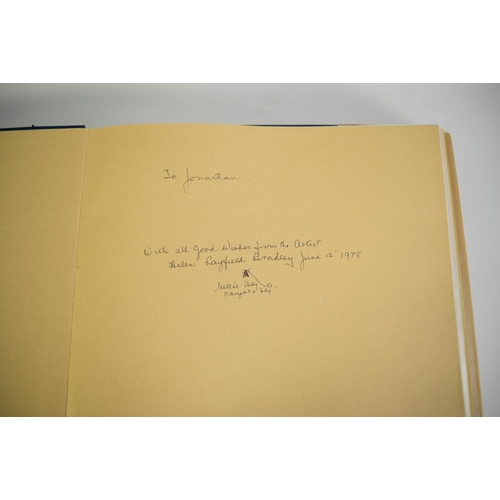 To Jonathan
With all Good Wishes from the Artist
Helen Layfield Bradley June 12" 1975
Nellie Bly
Caught a fly